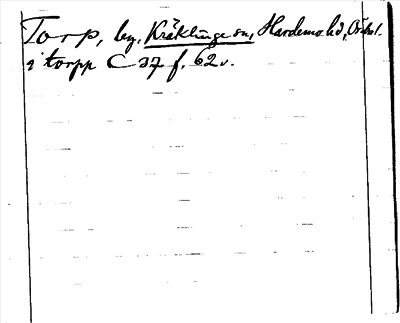 Torp, by, Kräklinge sn, Hardemo hd, Ör. l.
i torpp C 37 f. 62 v.